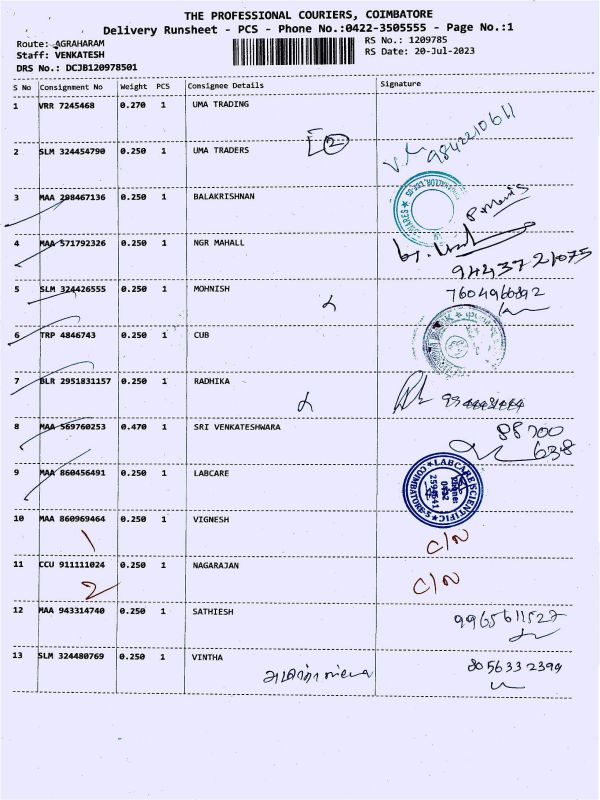 THE PROFESSIONAL COURIERS, COIMBATORE
Delivery Runsheet - PCS - Phone No.:0422-3505555 - Page No.:1
Route: AGRAHARAM
Staff: VENKATESH
DRS No.: DCJB120978501
RS No.: 1209785
RS Date: 20-Jul-2023
S No Consignment No Weight PCS Consignee Details Signature
1 VRR 7245468 0.270 1 UMA TRADING
2 9842210611
2 SLM 324454790 0.250 1 UMA TRADERS
3 MAA 298467136 0.250 1 BALAKRISHNAN
4 MAA 571792326 0.250 1 NGR MAHALL
9443721075
5 SLM 324426555 0.250 1 MOHNISH
6 TRP 4846743 0.250 1 CUB
7 BLR 2951831157 0.250 1 RADHIKA
8 MAA 569760253 0.470 1 SRI VENKATESHWARA 88700
638
9 MAA 860456491 0.250 1 LABCARE LABCARE SCIENTIFIC
COIMBATORE-5
10 MAA 860969464 0.250 1 VIGNESH
1 C/N
11 CCU 911111024 0.250 1 NAGARAJAN
2 C/N
12 MAA 943314740 0.250 1 SATHIESH 9965611527
13 SLM 324480769 0.250 1 VINTHA 8056332399